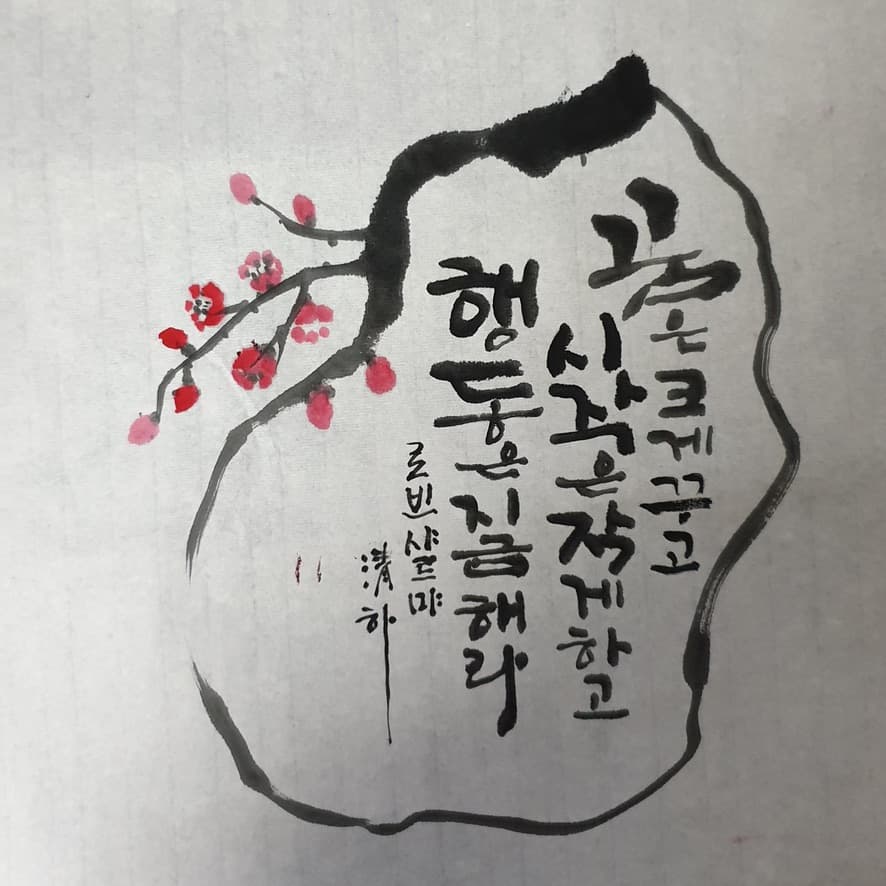 꿈은크게꾸고
시작은작게하고
행동은지금해라
로빈샤르마
淸하